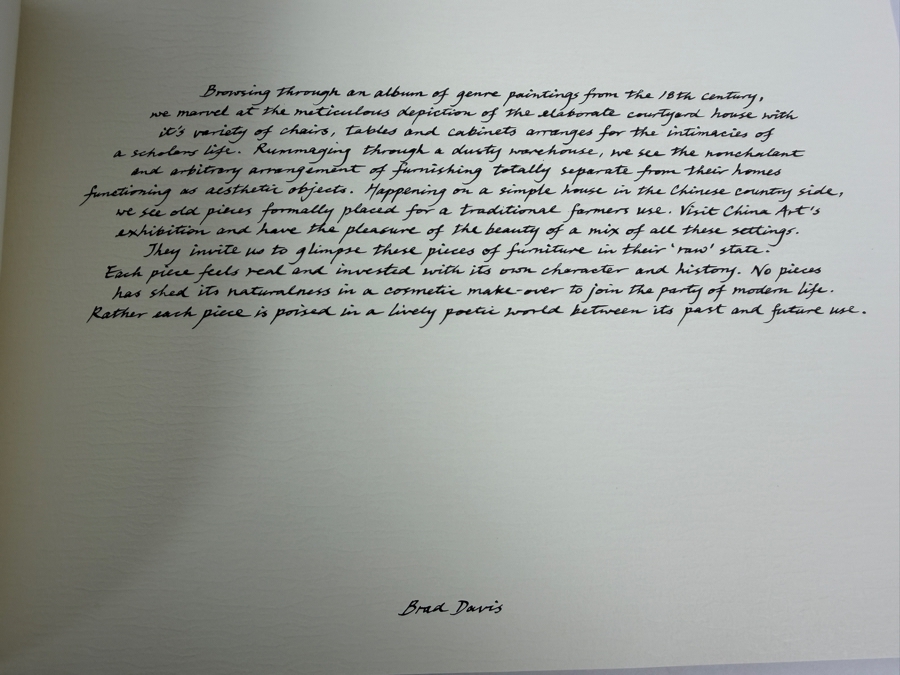 Browsing through an album of genre paintings from the 18th century,
we marvel at the meticulous depiction of the elaborate courtyard house with
it's variety of chairs, tables and cabinets arranges for the intimacies of
a scholars life. Rummaging through a dusty warehouse, we see the nonchalant
and arbitrary arrangement of furnishing totally separate from their homes
functioning as aesthetic objects. Happening on a simple house in the Chinese country side,
we see old pieces formally placed for a traditional farmers use. Visit China Art's
exhibition and have the pleasure of the beauty of a mix of all these settings.
They invite us to glimpse these pieces of furniture in their 'raw' state.
Each piece feels real and invested with its own character and history. No pieces
has shed its naturalness in a cosmetic make-over to join the party of modern life.
Rather each piece is poised in a lively poetic world between its past and future use.
Brad Davis